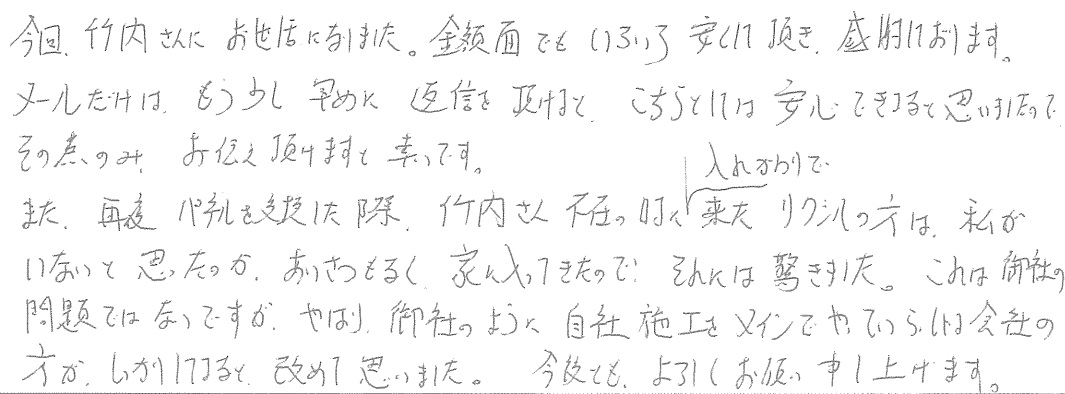 今回、竹内さんにお世話になりました。金額面でもいろいろ安くして頂き、感謝しております。
メールだけは、もう少し早めに返信を頂けると、こちらとしては安心できると思いましたので、
その点のみ、お伝え頂けますと幸いです。
入れかわりで
また、再度パネルを交換した際、竹内さん不在の時に来たリクシルの方は、私が
いないと思ったのか、あいさつもなく家に入ってきたので、それには驚きました。これは御社の
問題ではないですが、やはり、御社のように自社施工をメインでやっていらっしゃる会社の
方が、しっかりしてると、改めて思いました。 今後とも、よろしくお願い申し上げます。